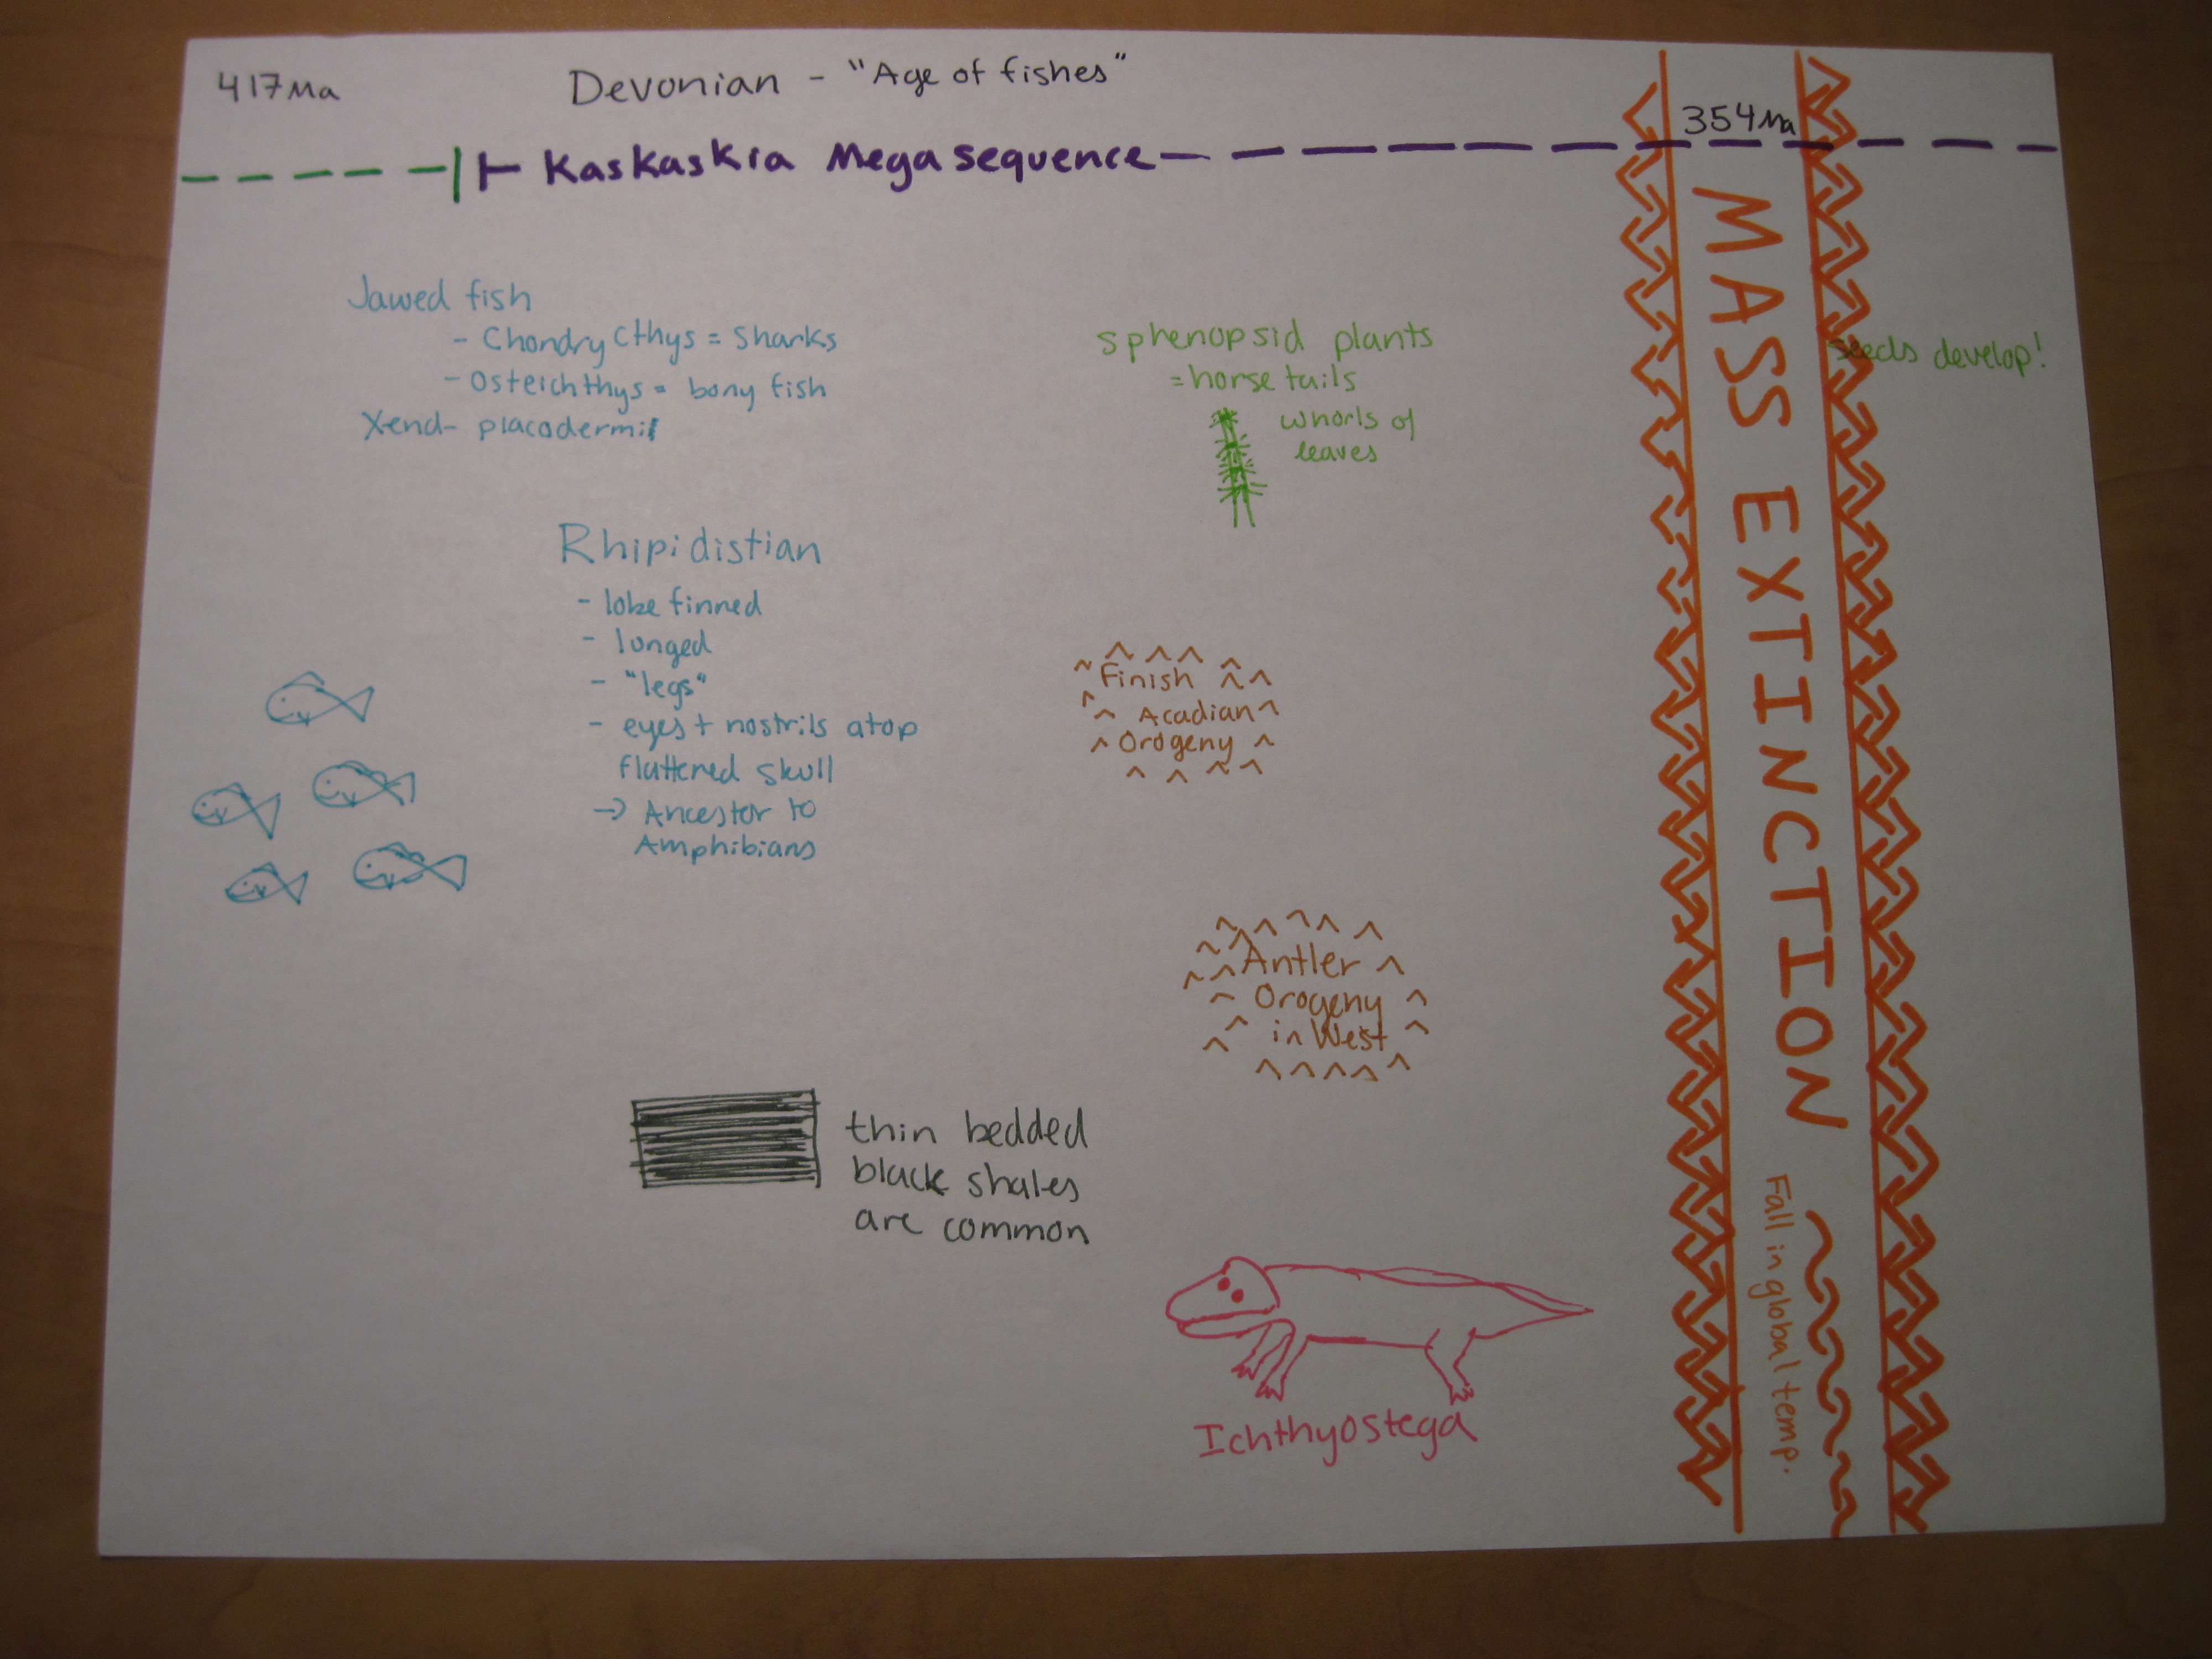 417Ma
Devonian - "Age of fishes"
354Ma
Kaskaskia Megasequence
Jawed fish
- Chondrycthys = Sharks
- Osteichthys = bony fish
Xend- placodermi
Rhipidistian
- lobe finned
- lunged
- "legs"
- eyes + nostrils atop
flattened skull
→ Ancestor to
Amphibians
sphenopsid plants
= horse tails
whorls of
leaves
Finish
Acadian
Orogeny
Antler
Orogeny
in West
thin bedded
black shales
are common
Ichthyostega
MASS EXTINCTION
Fall in global temp.
seeds develop!